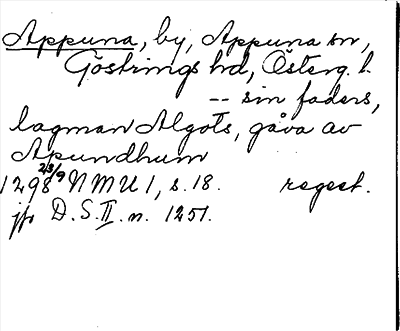 Appuna, by, Appuna sn,
Göstrings hd, Österg. l.
-- sin faders,
lagman Algots, gåva av
Apundhum
1298 23/9 NMU 1, s. 18. regest.
jfr D.S. II. n. 1251.